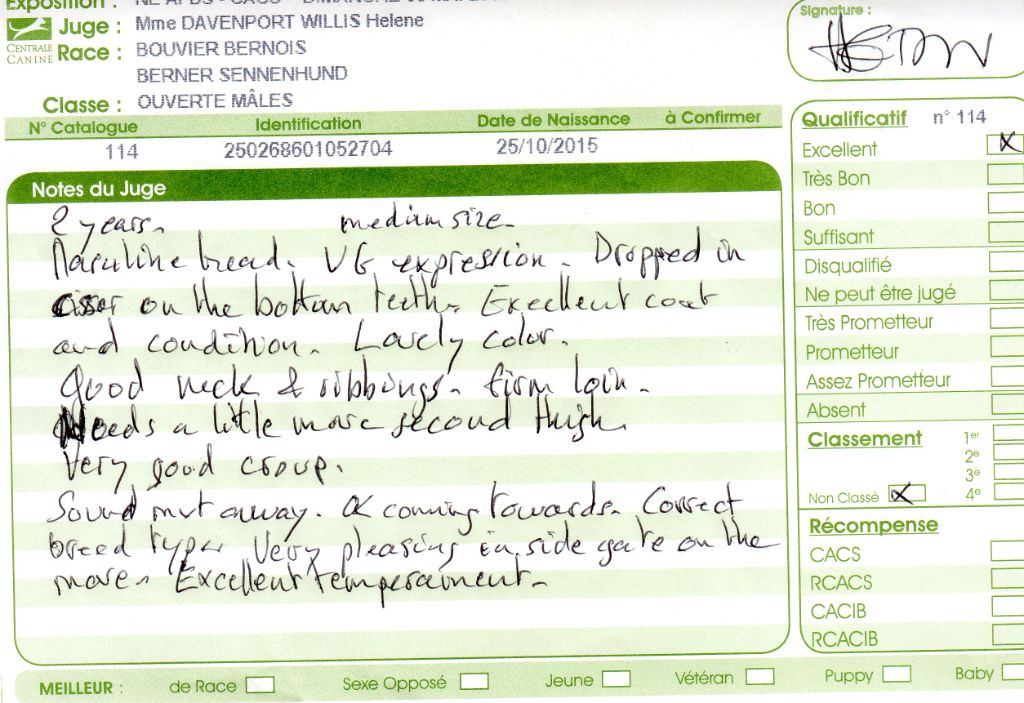 Exposition :
Juge : Mme DAVENPORT WILLIS Helene
CENTRALE CANINE
Race : BOUVIER BERNOIS
BERNER SENNENHUND
Classe : OUVERTE MÂLES
N° Catalogue Identification Date de Naissance à Confirmer
114 250268601052704 25/10/2015
Notes du Juge
2 years. medium size.
Masculine head. VG expression. Dropped in
on the bottom teeth. Excellent coat
and condition. Lovely color.
Good neck & ribbings. firm loin.
Needs a little more second thigh.
Very good croup.
Sound away. & coming towards. Correct
breed type. Very pleasing in side gate on the
move. Excellent temperament.
Signature :
Qualificatif n° 114
Excellent X
Très Bon
Bon
Suffisant
Disqualifié
Ne peut être jugé
Très Prometteur
Prometteur
Assez Prometteur
Absent
Classement 1er
2e
3e
Non Classé X 4e
Récompense
CACS
RCACS
CACIB
RCACIB
MEILLEUR : de Race Sexe Opposé Jeune Vétéran Puppy Baby